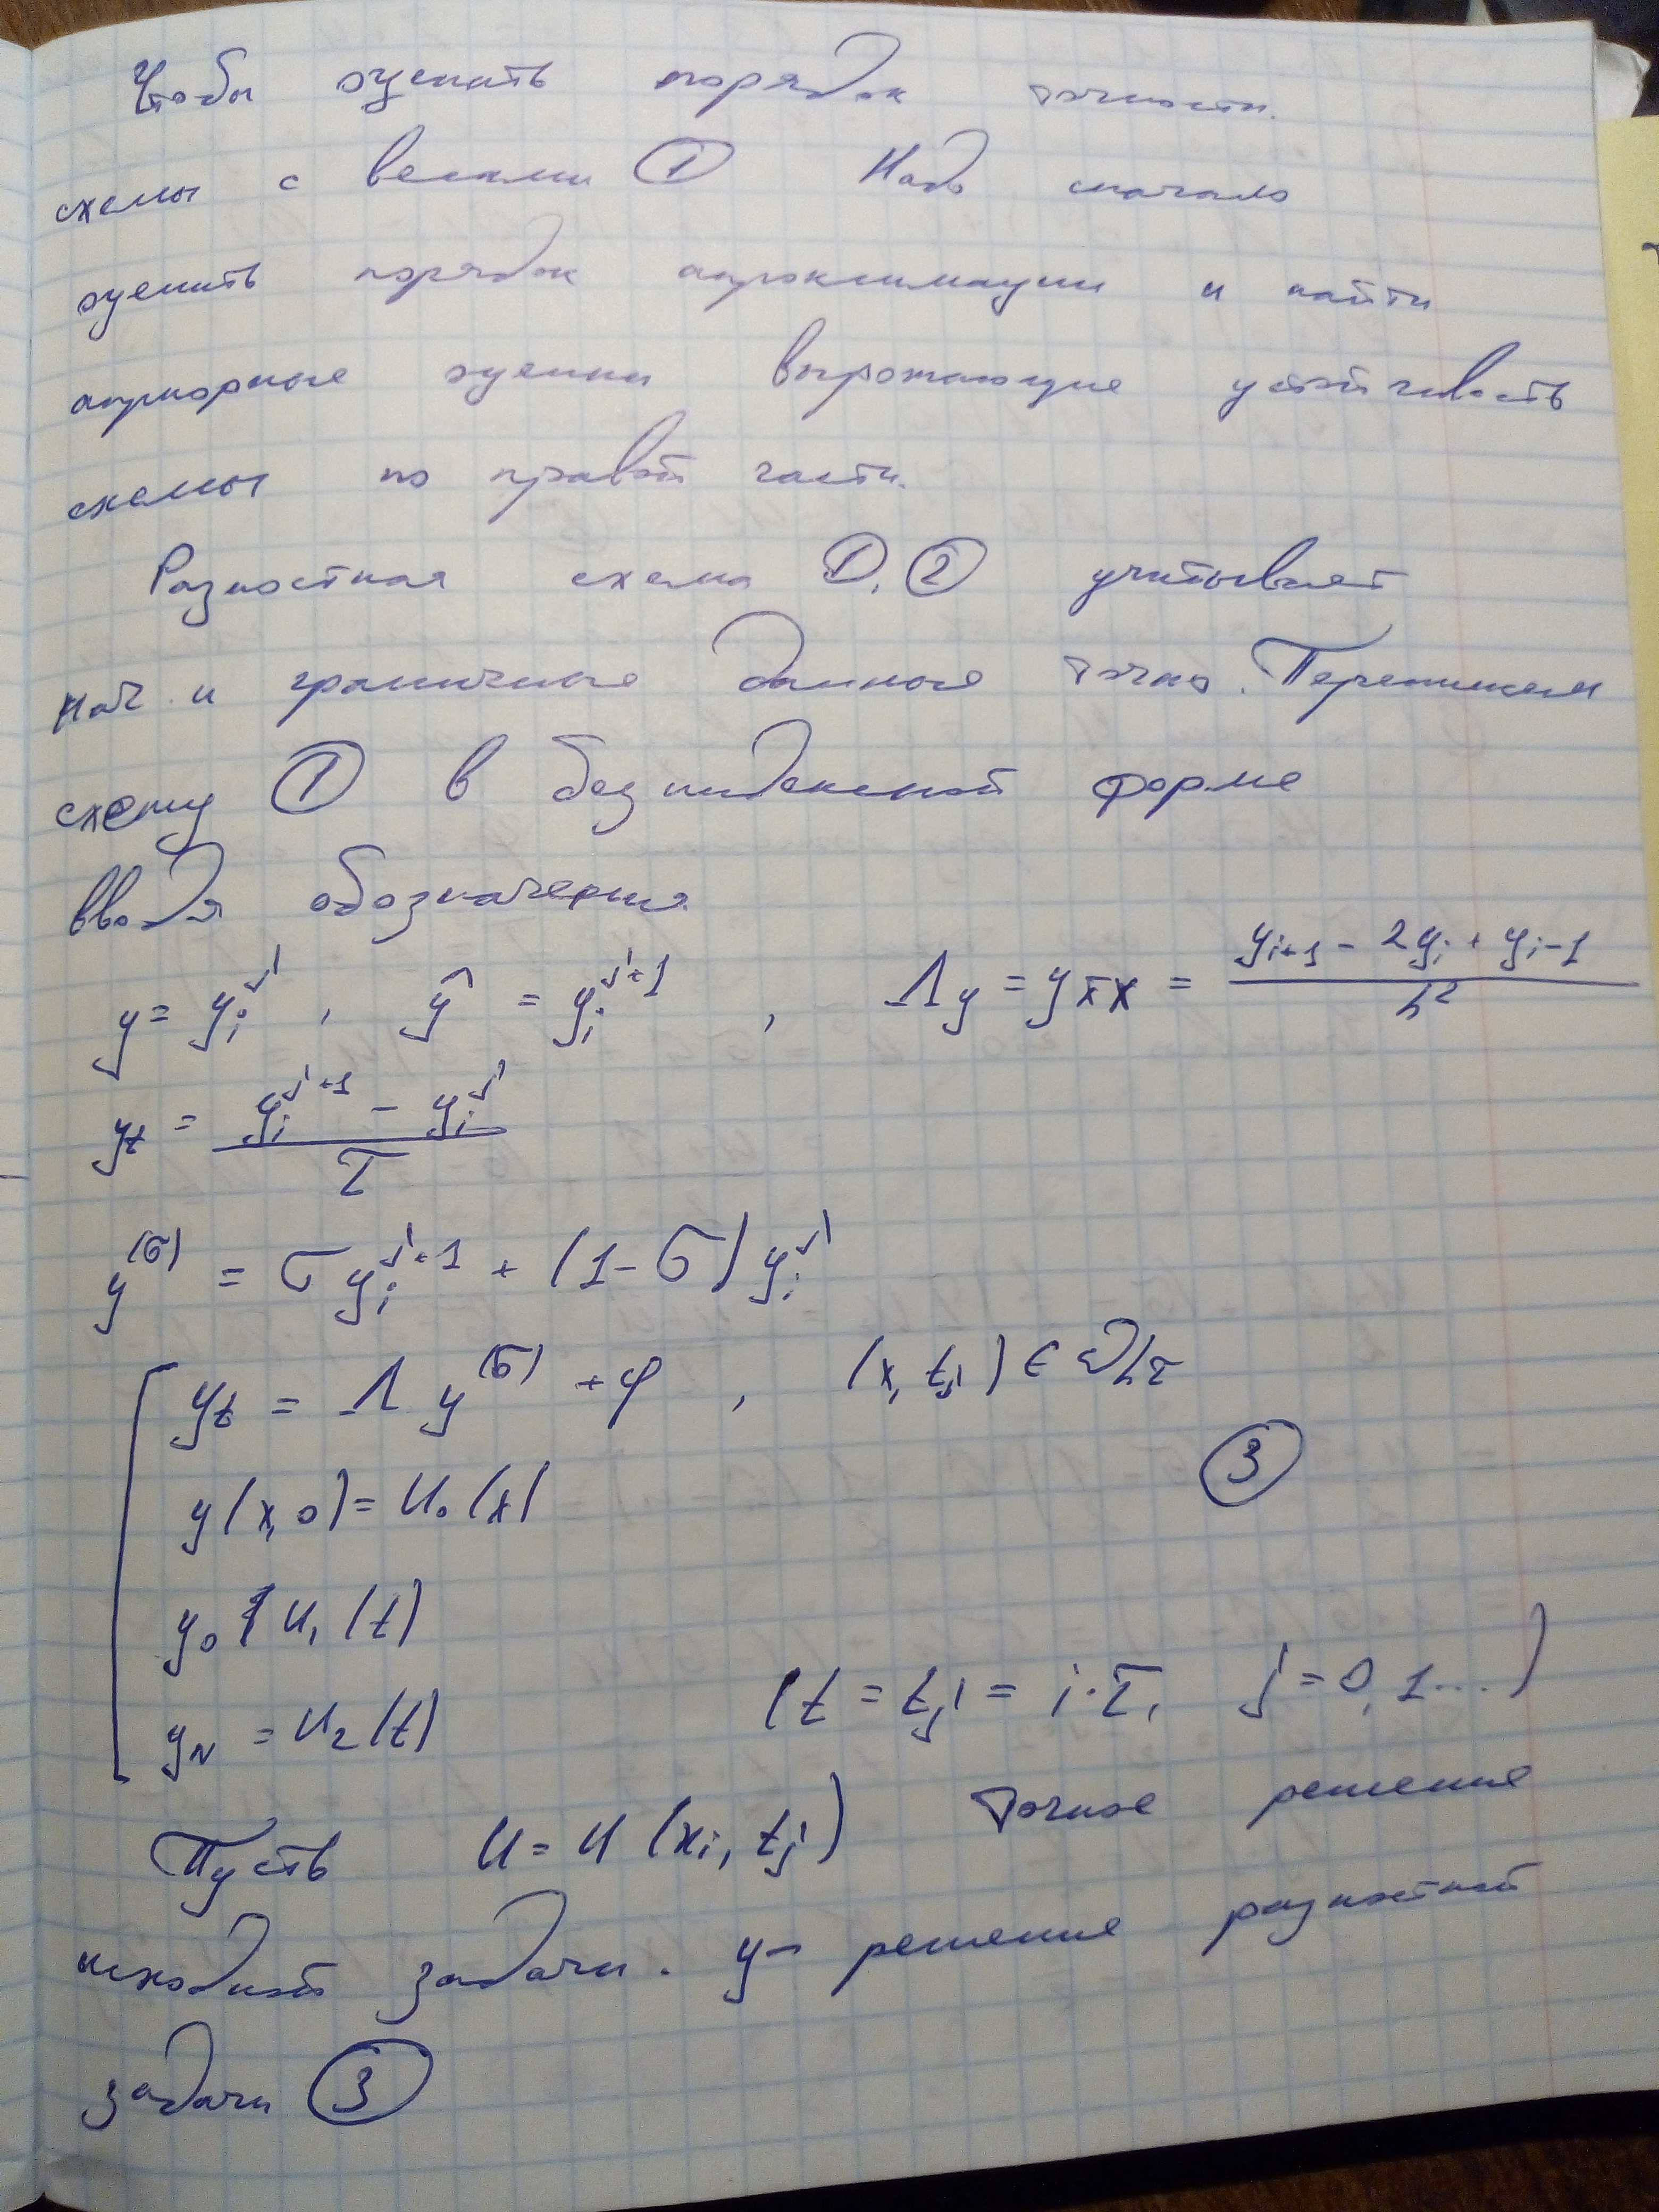 Чтобы оценить порядок точности.
схемы с весами ① Надо сначало
оценить порядок апроксимации и найти
априорные оценки вырожающие устойчивость
схемы по правой части.
Разностная схема ①, ② учитывает
нач. и граничные данные точно. Перепишем
схему ① в безиндексной форме
вводя обозначения
y = y_i^j , ŷ = y_i^{j+1} , Λy = y_{x̄x} = (y_{i+1} - 2y_i + y_{i-1}) / h²
y_t = (y_i^{j+1} - y_i^j) / τ
y^{(σ)} = σ y_i^{j+1} + (1-σ) y_i^j
y_t = Λ y^{(σ)} + φ , (x, t_j) ∈ ω_{hτ}
③
y(x,0) = u_0(x)
y_0 = u_1(t)
y_N = u_2(t) (t = t_j = i·τ, j = 0, 1 ...)
Пусть u = u(x_i, t_j) точное решение
исходной задачи. y - решение разностной
задачи ③